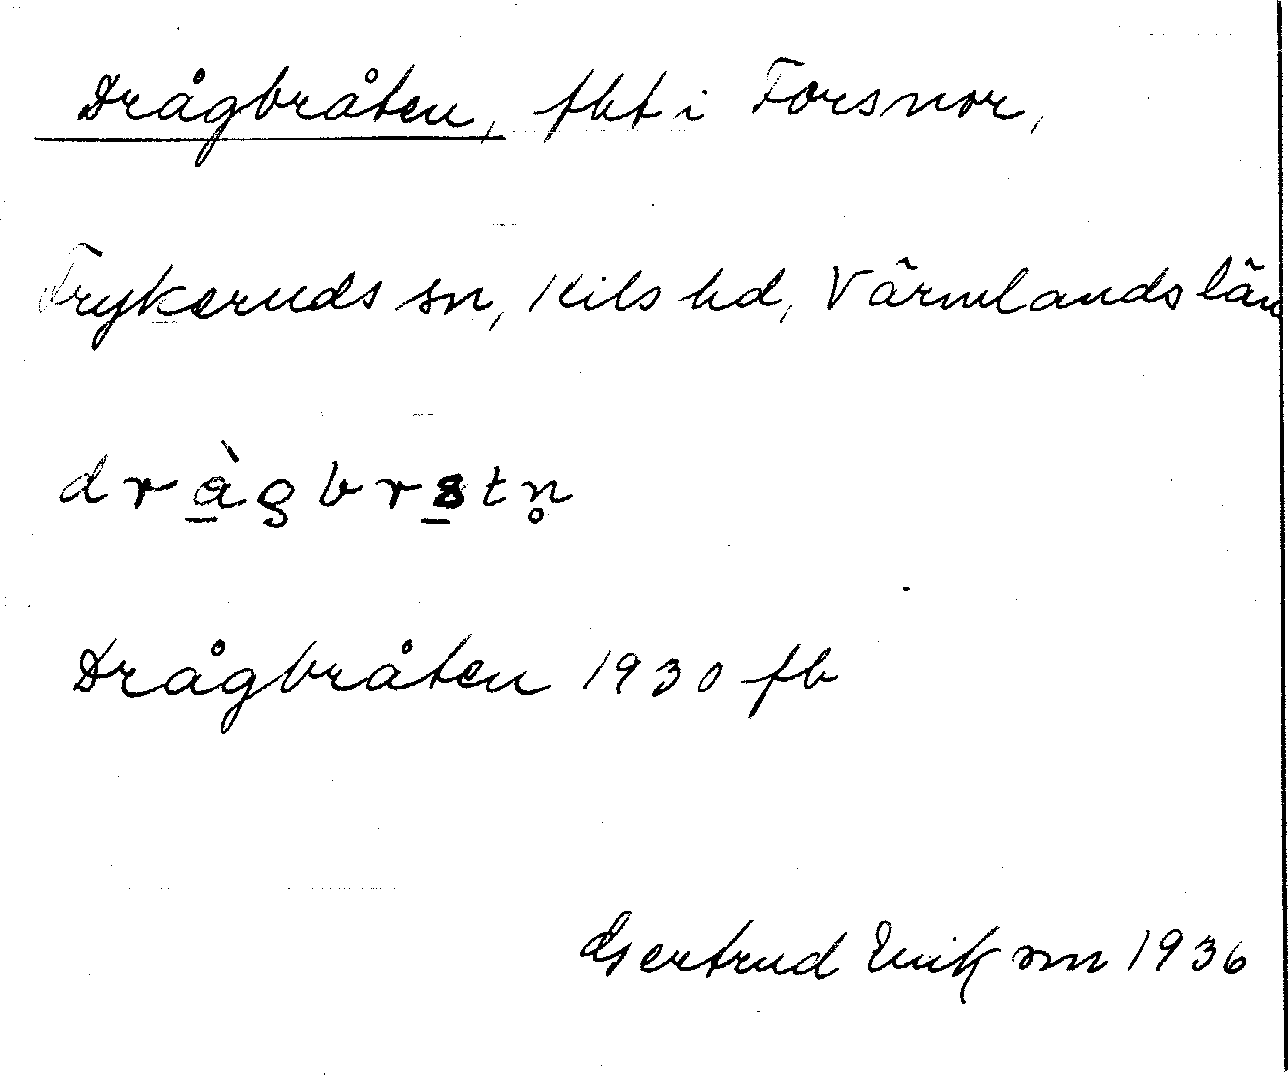 Drågbråten, fht i Forsnor,
Frykeruds sn, Kils hd, Värmlands län
dràgbrstn̥
Drågbråten 1930 fb
Gertrud Erikson 1936